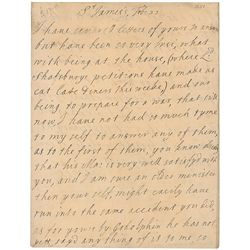 St James's
I have several letters of yours to answer
but have been so very ,
with being at the house, (where Ld
Shaftsbury petitions have made us
late this weeke) and one
being to prepare for a war, that till
now, I have not had so much time
to my self to answer any of them,
as to the first of them, you know
that his Ma: is very well satisfyd with
you, and I am sure an older minister
then your self, might easily have
run into the same accident you did,
as for yours by Godolphin he has not
yett sayd any thing of it to me, so